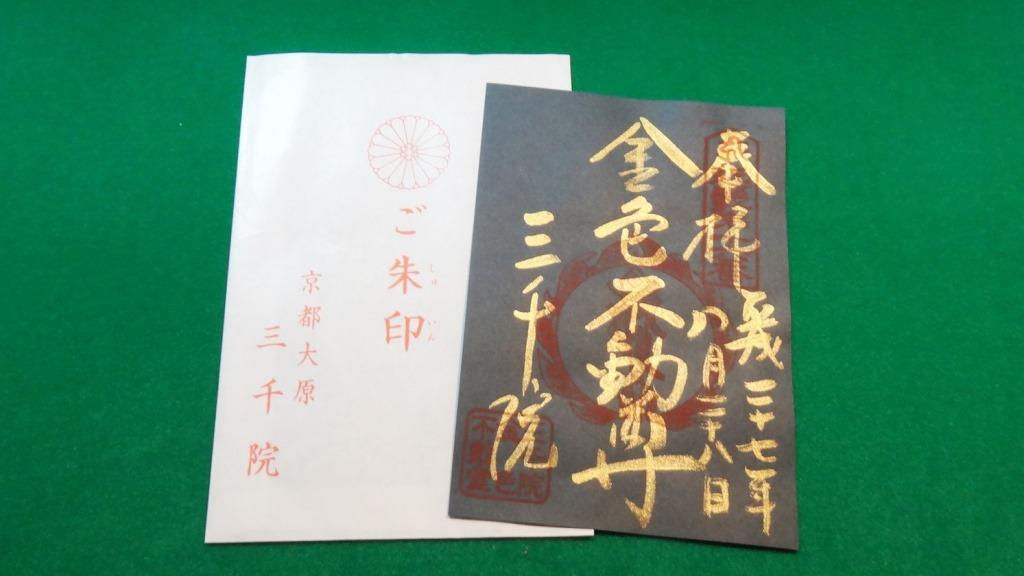 ご朱印
しゅ いん
京都大原
三千院
奉拝
平成二十七年
八月二十八日
金色不動尊
三千院